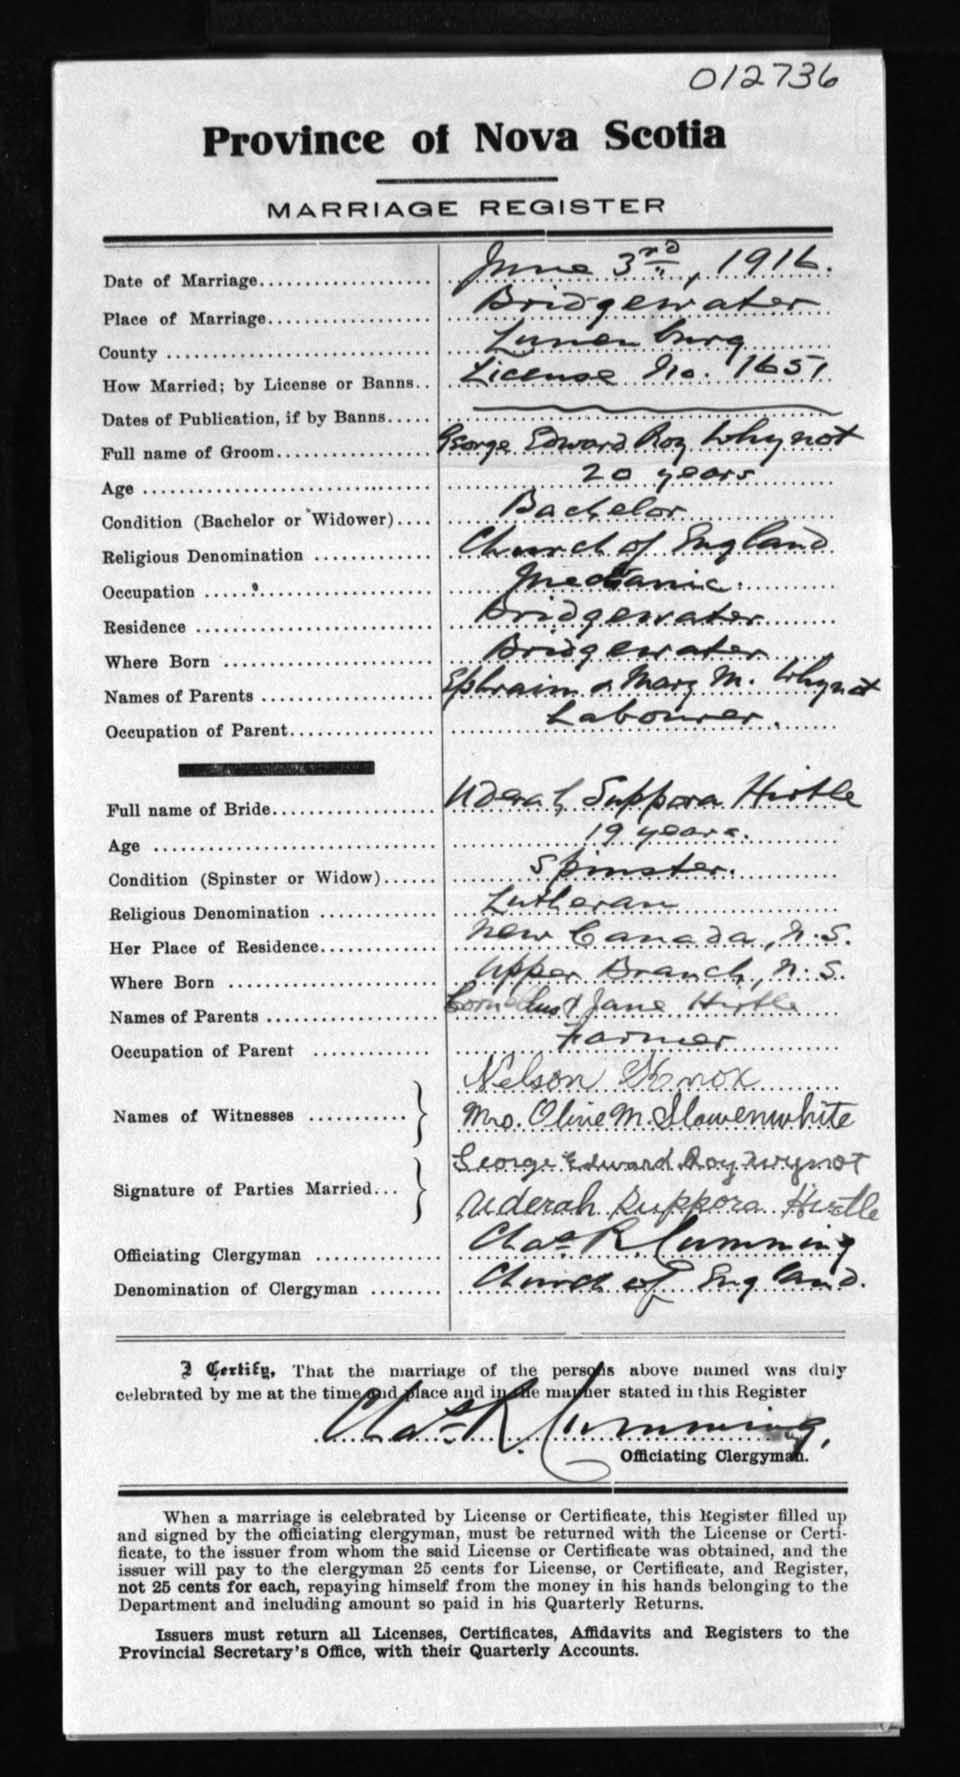 012736
Province of Nova Scotia
MARRIAGE REGISTER
Date of Marriage................... June 3rd, 1916.
Place of Marriage.................. Bridgewater
County ............................. Lunenburg
How Married; by License or Banns.. License No. 1651
Dates of Publication, if by Banns.....
Full name of Groom................. George Edward Roy Whynot
Age ................................ 20 years
Condition (Bachelor or Widower).... Bachelor
Religious Denomination ............. Church of England
Occupation ......................... Mechanic.
Residence .......................... Bridgewater
Where Born ........................ Bridgewater
Names of Parents ................... Ephraim & Mary M. Whynot
Occupation of Parent................ Labourer.
Full name of Bride.................. Uderah Suppora Hirtle
Age ................................ 19 years.
Condition (Spinster or Widow)...... Spinster.
Religious Denomination ............. Lutheran
Her Place of Residence............. New Canada, N.S.
Where Born ........................ Upper Branch, N.S.
Names of Parents ................... Cornelius & Jane Hirtle
Occupation of Parent .............. Farmer
Nelson Knox
Names of Witnesses ........... } Mrs. Olive M. Slawenwhite
George Edward Roy Wynot
Signature of Parties Married... } Uderah Suppora Hirtle
Officiating Clergyman .............. Chas R. Cumming
Denomination of Clergyman ........ Church of England.
I Certify, That the marriage of the persons above named was duly
celebrated by me at the time and place and in the manner stated in this Register
Chas R. Cumming,
Officiating Clergyman.
When a marriage is celebrated by License or Certificate, this Register filled up
and signed by the officiating clergyman, must be returned with the License or Certi-
ficate, to the issuer from whom the said License or Certificate was obtained, and the
issuer will pay to the clergyman 25 cents for License, or Certificate, and Register,
not 25 cents for each, repaying himself from the money in his hands belonging to the
Department and including amount so paid in his Quarterly Returns.
Issuers must return all Licenses, Certificates, Affidavits and Registers to the
Provincial Secretary's Office, with their Quarterly Accounts.